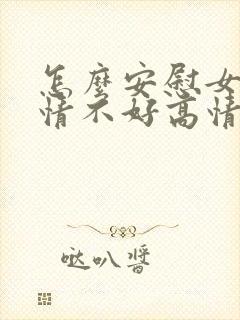 怎麼安慰女
情不好高情
哒叭醬